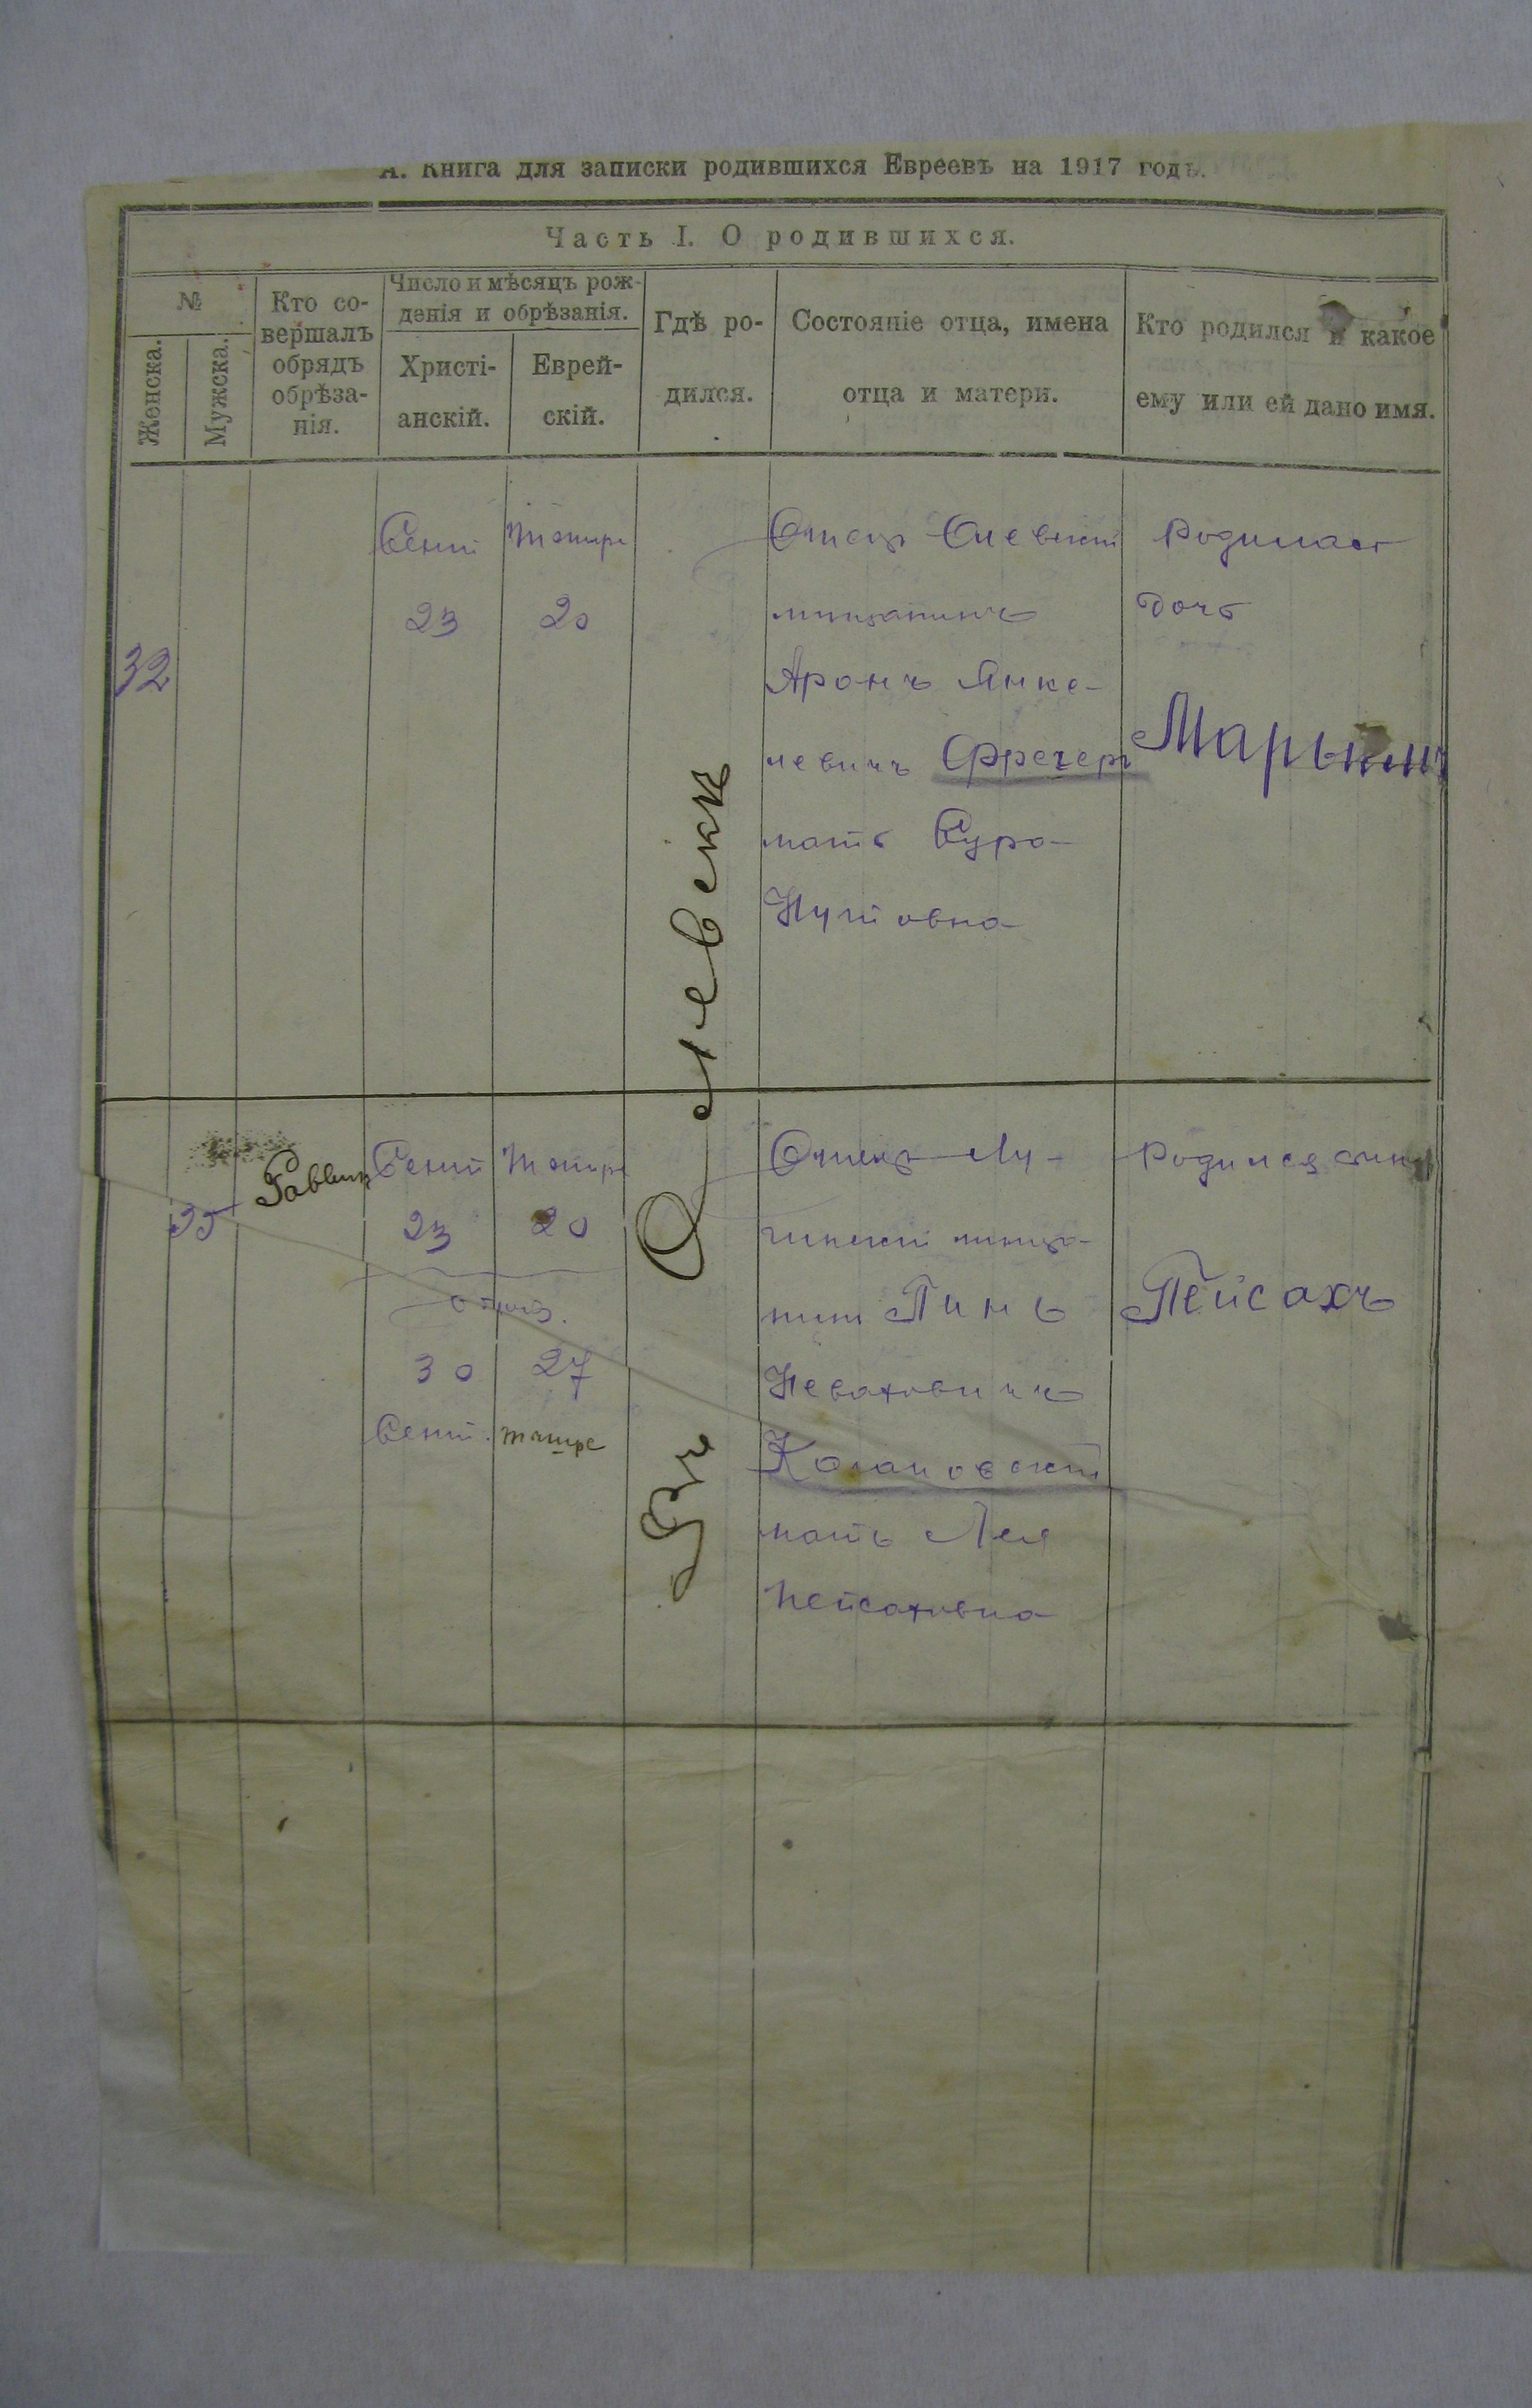 А. Книга для записки родившихся Евреевъ на 1917 годъ.
Часть I. О родившихся.
№
Женска.
Мужска.
Кто со-
вершалъ
обрядъ
обрѣза-
нія.
Число и мѣсяцъ рож-
денія и обрѣзанія.
Христі-
анскій.
Еврей-
скій.
Гдѣ ро-
дился.
Состояніе отца, имена
отца и матери.
Кто родился и какое
ему или ей дано имя.
32
Сент
23
Тишре
20
Отецъ Олевскій
мищанинъ
Аронъ Янке-
левичъ
мать Сура
Нутовна
Родилась
дочь
Въ Олевскѣ
Сент
23
30
Сент.
Тишре
20
27
Тишре
Отецъ Лу-
гинскій мища-
нин Пинь
Неваховичъ
мать Лея
Пейсаховна
Родился сынъ
Пейсахъ